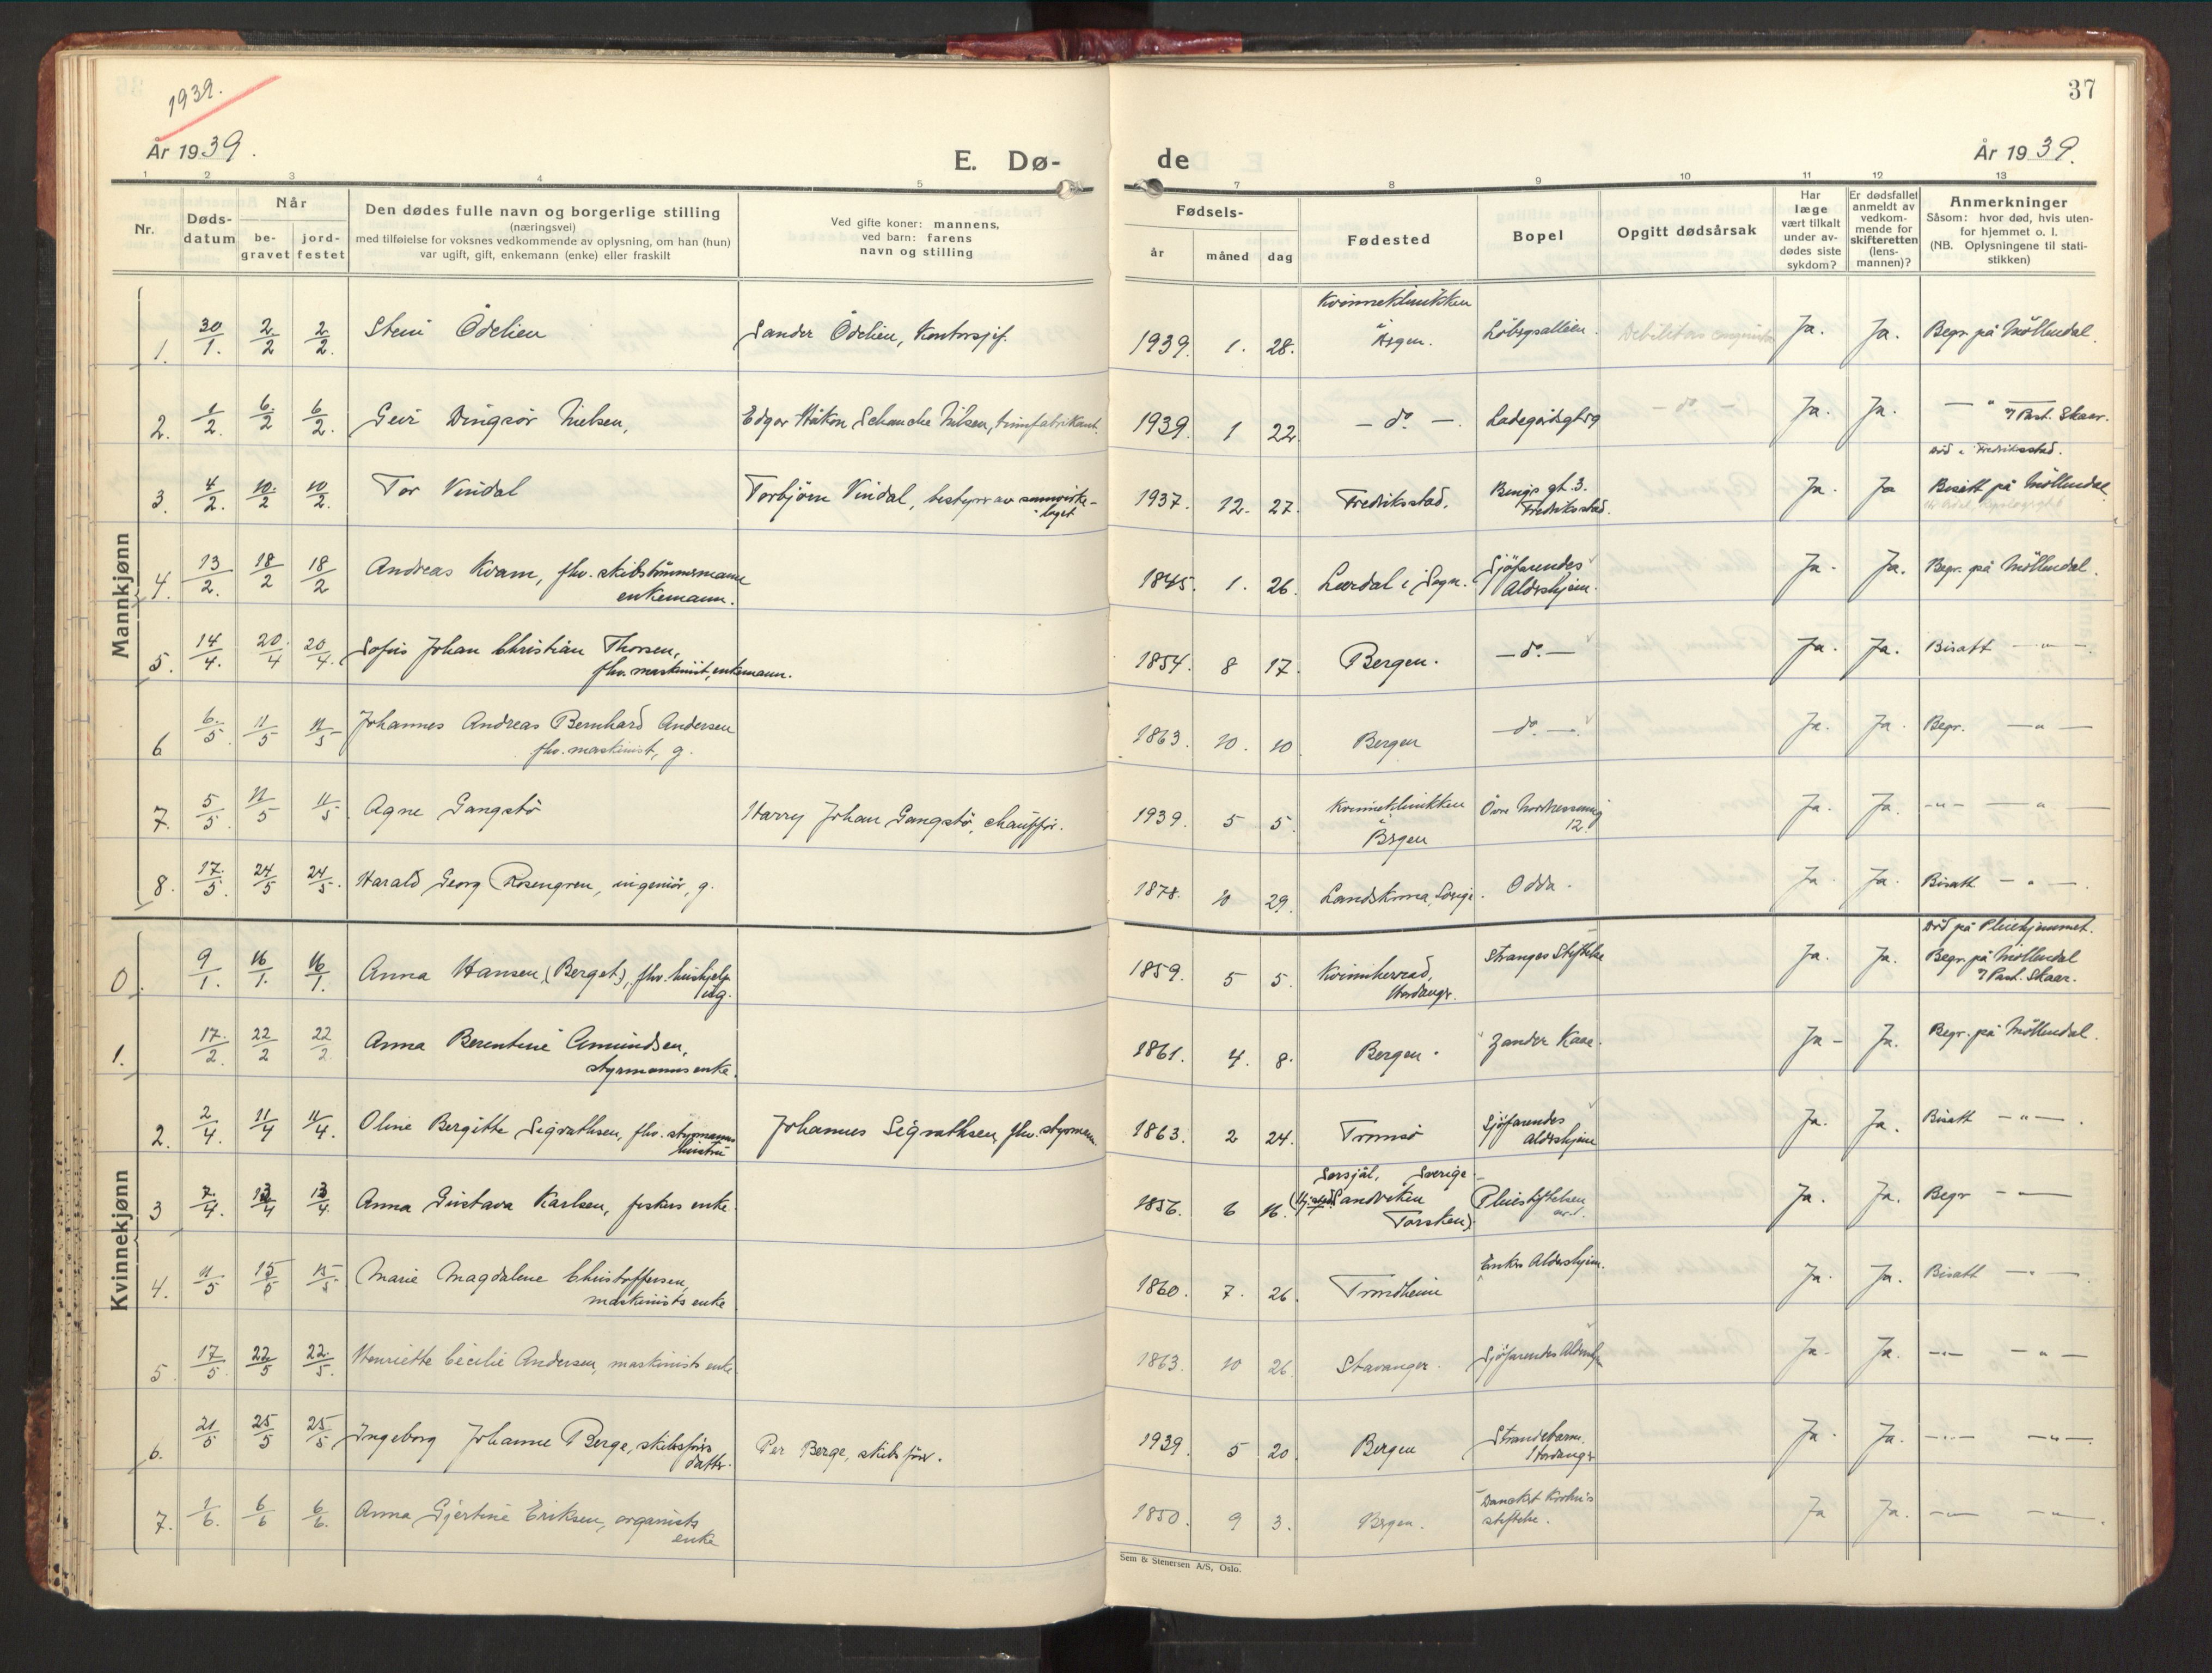 1939.
37
År 1939.
E. Dø-
de
År 1939.
1 2 3 4 5 7 8 9 10 11 12 13
Nr.
Døds-
datum
Når
be-
gravet
jord-
festet
Den dødes fulle navn og borgerlige stilling
(næringsvei)
med tilføielse for voksnes vedkommende av oplysning, om han (hun)
var ugift, gift, enkemann (enke) eller fraskilt
Ved gifte koner: mannens,
ved barn: farens
navn og stilling
Fødsels-
år
måned
dag
Fødested
Bopel
Opgitt dødsårsak
Har
læge
vært tilkalt
under av-
dødes siste
sykdom?
Er dødsfallet
anmeldt av
vedkom-
mende for
skifteretten
(lens-
mannen)?
Anmerkninger
Såsom: hvor død, hvis uten-
for hjemmet o. l.
(NB. Oplysningene til stati-
stikken)
Mannkjønn
1. 30/1. 2/2 2/2. Ödelien Sander Ödelien, Kontorsjef. 1939. 1. 28. Kvinneklinikken Ja. Ja. Begr. på Möllendal.
2. 1/2. 6/2 6/2. Geir Dingsör Nielsen, Edgar Håkon Schanche Nilsen, 1939. 1 22. - do. - Ladegårdsgt - do - Ja. Ja. - " - Past. Skaar.
död i Fredriksstad.
3. 4/2. 10/2 10/2. Tor Vindal Torbjörn Vindal, bestyrer av samvirke-
laget 1937. 12. 27. Fredriksstad. gt. 3.
Fredriksstad. Ja. Ja Bisatt på Möllendal
4. 13/2. 18/2 18/2 Andreas Kvam, fhv. skibstömmermann
enkemann. 1845. 1. 26. Lærdal i Sogn. Sjöfarendes
Aldershjem. Ja. Ja. Begr. på Möllendal.
5. 14/4. 20/4 20/4. Sofus Johan Christian Thorsen,
fhv. maskinist, enkemann. 1854. 8 17. Bergen. - do. - Ja. Ja. Bisatt - " -
6 6/5. 11/5 11/5 Johannes Andreas Bernhard Andersen
fhv. maskinist, g. 1863. 10. 10 Bergen - do. - Ja. Ja. Begr. - " -
7. 5/5. 11/5 11/5 Agne Gangstö Harry Johan Gangstö, chauffør. 1939. 5 5. Kvinneklinikken
Bergen Övre 12. Ja. Ja. - " - - " -
8. 17/5. 24/5 24/5. Harald Georg Rosengren, ingeniör, g. 1878. 10 29. Landskrona, Sverige. Odda. Ja. Ja. Bisatt - " -
Kvinnekjønn
0. 9/1. 16/1. 16/1. Anna Hansen (Berget), fhv. hushjelp
ug. 1859. 5 5. Kvinnherrad,
Hardanger. Stranges Stiftelse Ja. Ja. död på Pleiehjemmet.
Begr. på Möllendal
Past. Skaar.
1. 17/2. 22/2 22/2 Anna Berentine Amundsen,
styrmanns enke. 1861. 4. 8. Bergen. Zander Kaae. Ja - Ja. Begr. på Möllendal.
2. 2/4. 11/4 11/4. Oline Bergitte Sigvathsen, fhv. styrmanns
hustru Johannes Sigvathsen, fhv. styrmann 1863. 2 24. Tromsö Sjöfarendes
Aldershjem Ja. Ja. Bisatt - " -
3 7/4. 13/4 13/4. Anna Gustava Karlsen, fiskers enke. 1856. 6 16. Sverige
Sandviken
Torsken) Pleiestiftelsen Ja. Ja. Begr - -
4. 11/5 15/5 15/5. Marie Magdalene Christoffersen,
maskinists enke 1860. 7. 26. Trondheim Enkers Aldershjem. Ja. Ja. Bisatt - " -
5 17/5. 22/5 22/5. Henriette Cecilie Andersen, maskinists enke. 1863. 10 26. Stavanger. Sjöfarendes Aldershjem Ja. Ja. - " - - " -
6. 21/5 25/5 25/5. Ingeborg Johanne Berge, skibsförers
datter. Per Berge, skibsförer. 1939. 5 20. Bergen Strandebarm.
Hardanger Ja. Ja. - " - - " -
7. 1/6. 6/6 6/6. Anna Gjertine Eriksen, organists
enke 1850. 9 3. Bergen. Danckert Krohns
stiftelse. Ja Ja. - " - - " -
Sem & Stenersen A/S, Oslo.